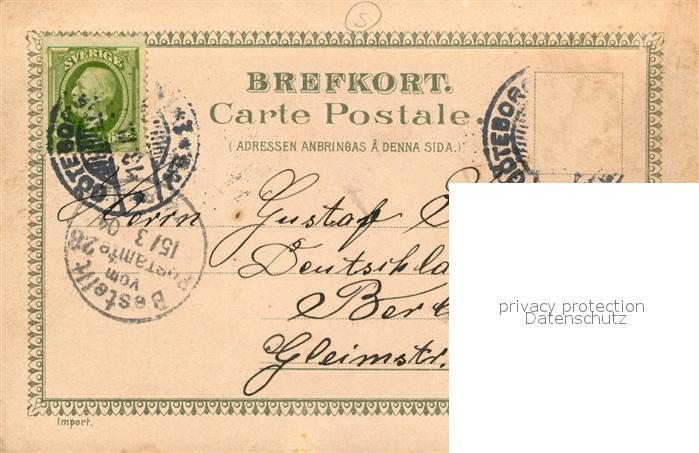 S
SVERIGE
BREFKORT.
Carte Postale.
(ADRESSEN ANBRINGAS Å DENNA SIDA.)
GÖTEBORG
GÖTEBORG
Herrn Gustaf
Deutschla
Ber
Gleimstr.
Bestellt
vom
Postamte 28
15/3 04
privacy protection
Datenschutz
Import.